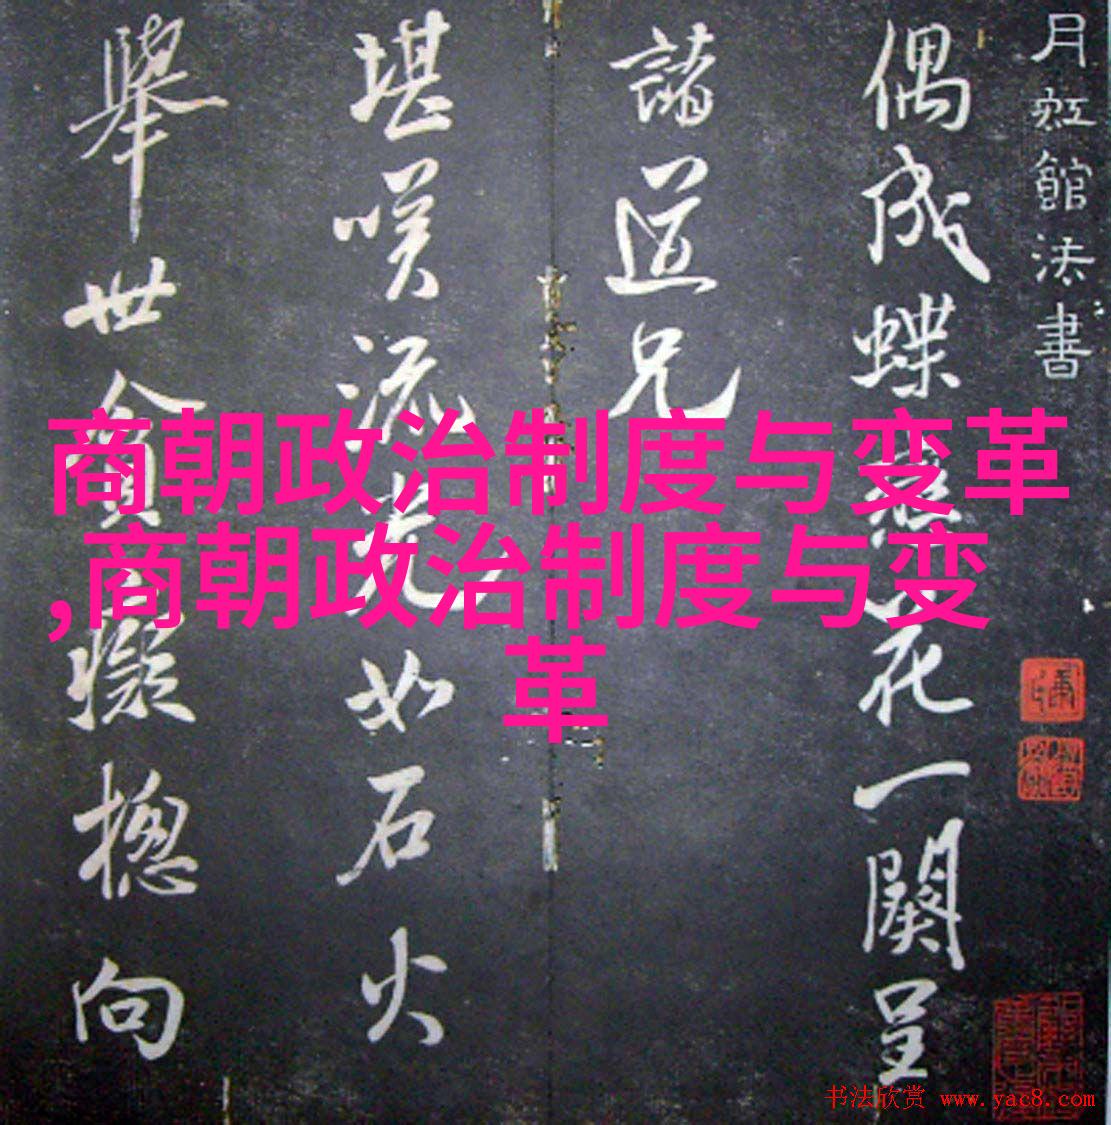 月虹館法書
偶成蝶戀花一闋呈
諸道兄
堪咲流光如石火
舉世貪癡揔向
商朝政治制度与变革
,商朝政治制度与变
革
书法欣赏 www.yac8.com